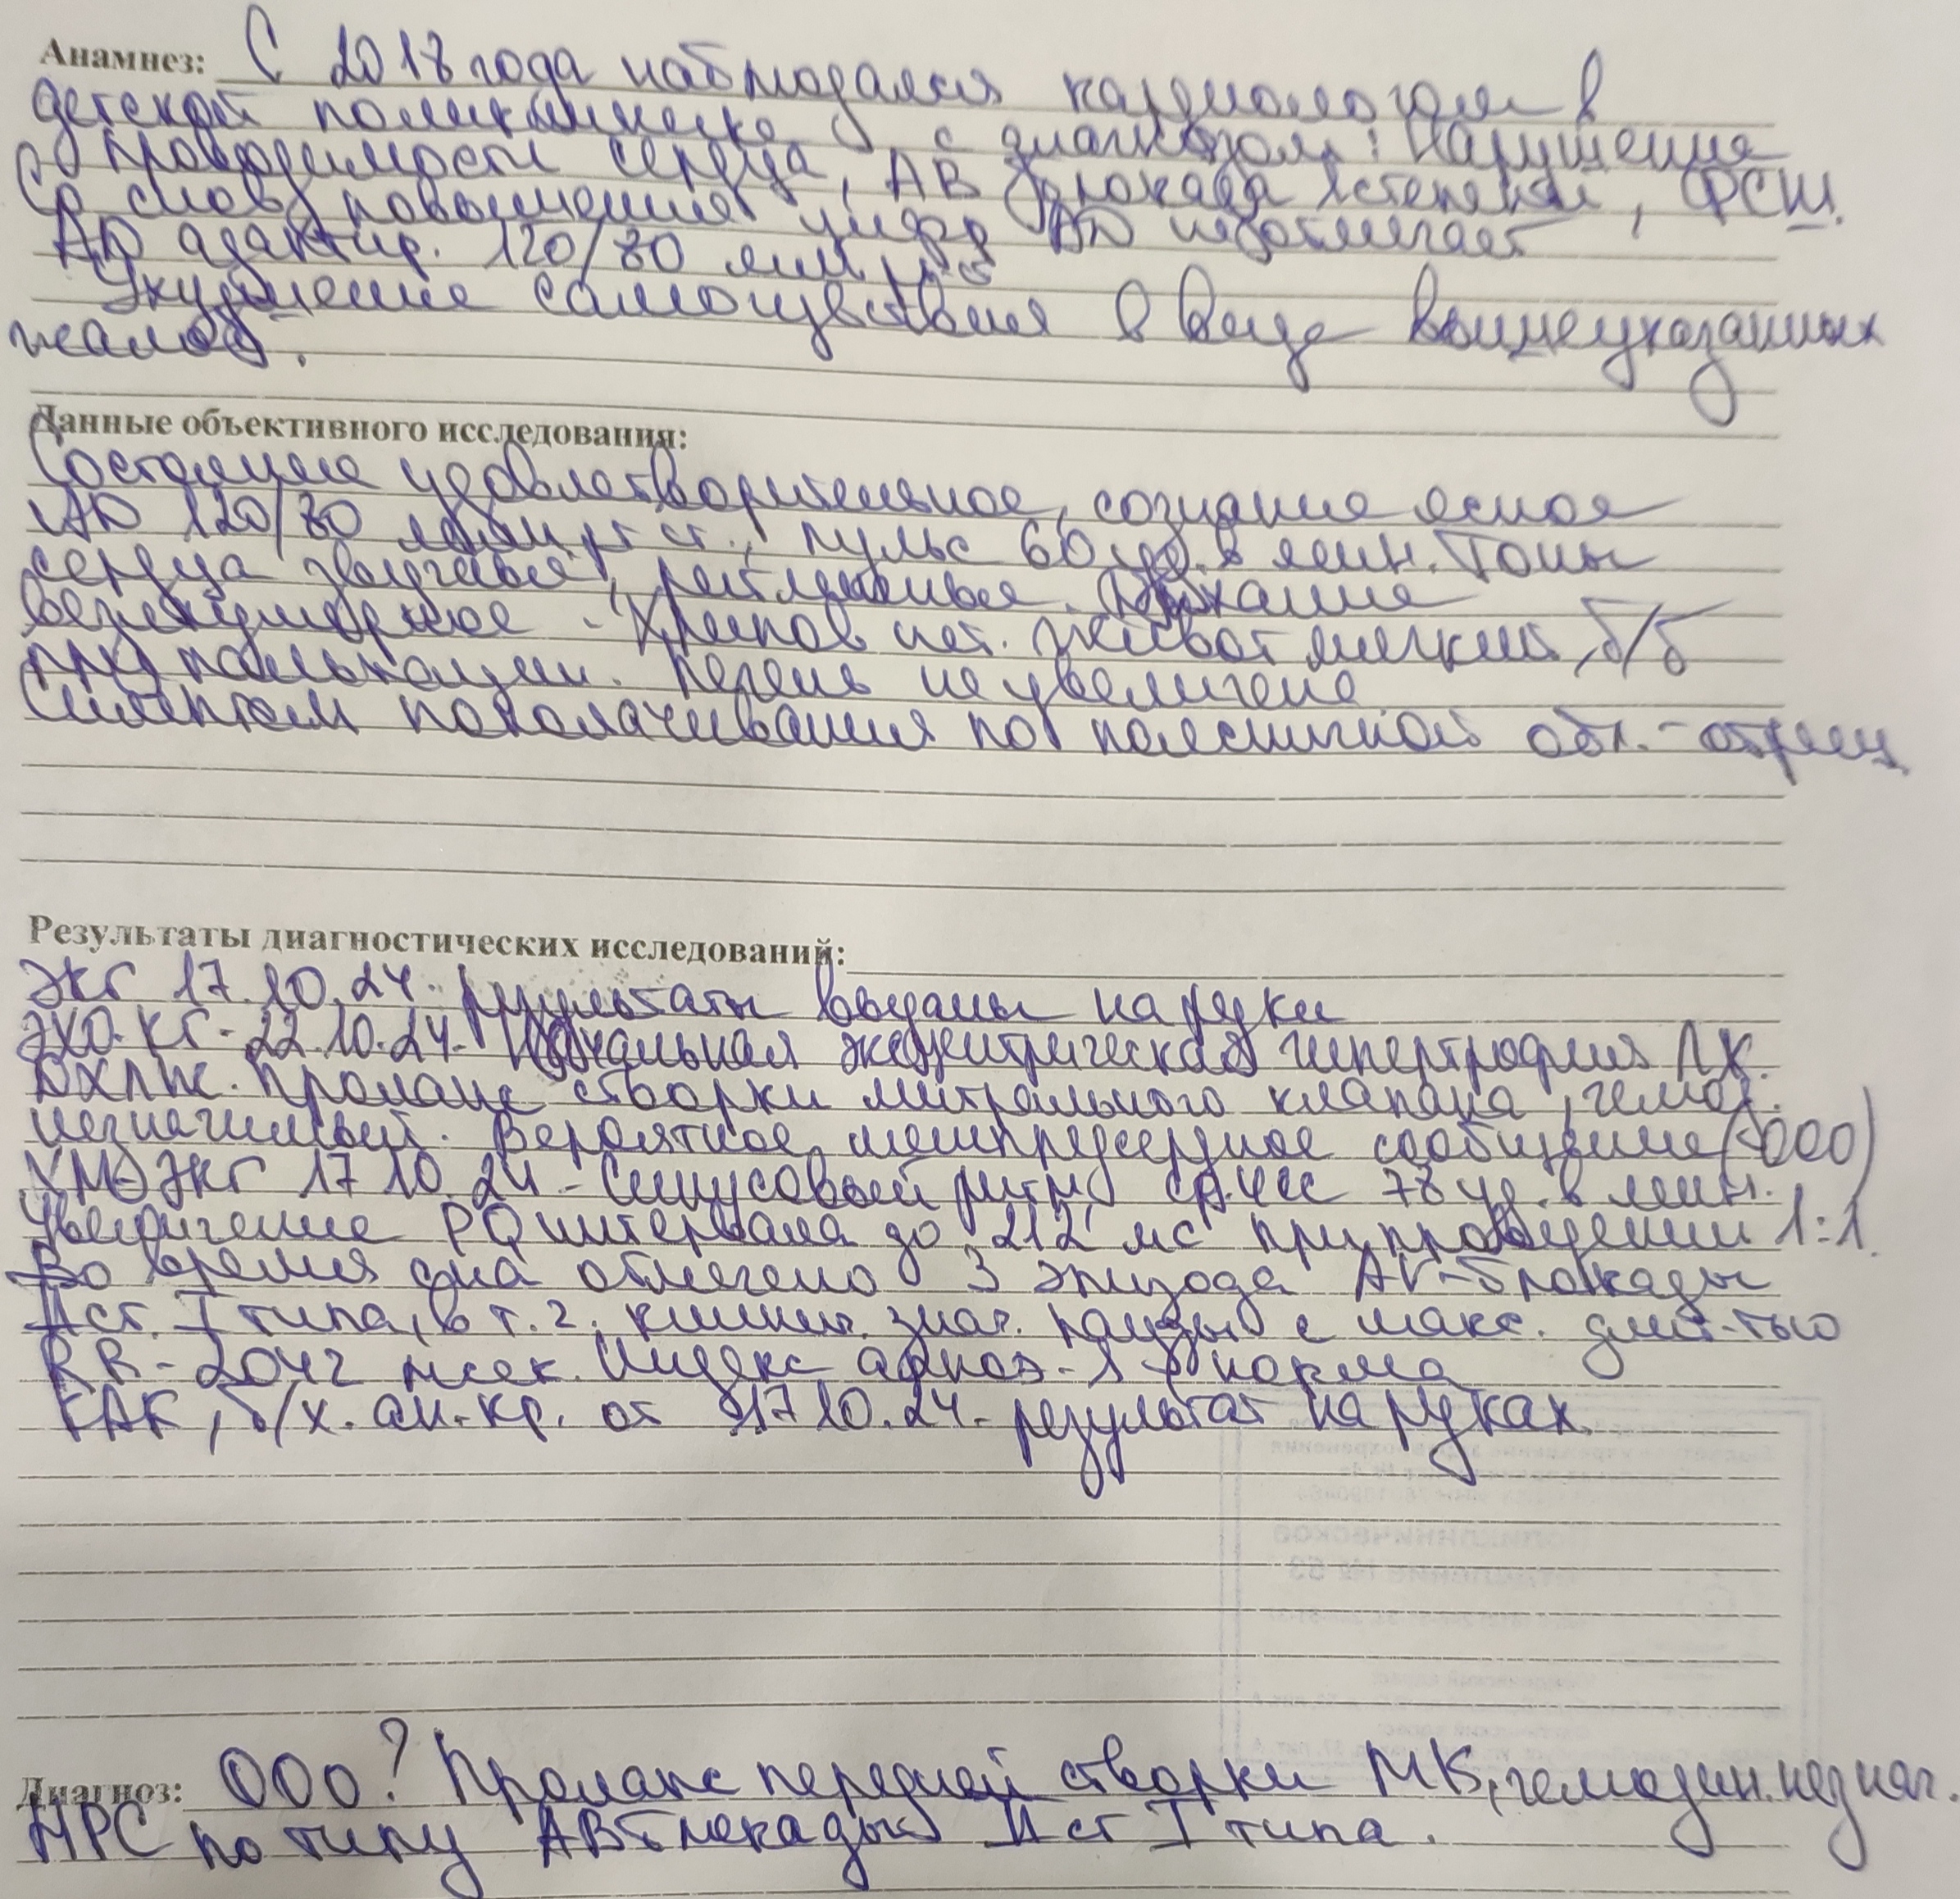 Анамнез: С 2018 года наблюдался кардиологом в
детской поликлинике с диагнозом: Нарушение
проводимости сердца, АВ блокада I степени, ФСШ.
Со слов повышения цифр АД не отмечает
АД адаптир. 120/80 мм рт с
Ухудшение самочувствия в виде вышеуказанных
жалоб.
Данные объективного исследования:
Состояние удовлетворительное, сознание ясное
АД 120/80 мм рт ст., пульс 60 уд. в мин. Тоны
сердца звучные, ритмичные. Дыхание
везикулярное. Хрипов нет. Живот мягкий, б/б
при пальпации. Печень не увеличена
Симптом поколачивания по поясничной обл. - отриц.
Результаты диагностических исследований:
ЭКГ 17.10.24. результаты выданы на руки
ЭХО-КГ - 22.10.24. эксцентрическая гипертрофия ЛЖ.
ДХЛЖ. Пролапс створки митрального клапана, гемод.
незначимый. Вероятное межпредсердное сообщение (ООО)
ХМЭКГ 17 10. 24 - Синусовый ритм ср. ЧСС 78 уд. в мин.
Увеличение PQ интервала до 212 мс при проведении 1:1.
Во время сна отмечено 3 эпизода АV-блокады
II ст. I типа, в т. ч. клинич. знач. паузы с макс. длит-тью
RR - 2042 мсек. Индекс апноэ - 1 - норма
КАК, б/х. ан. кр. от 17 10. 24. результат на руках.
Диагноз: ООО? Пролапс передней створки МК, гемодин. незнач.
НРС по типу АВ блокады II ст I типа.